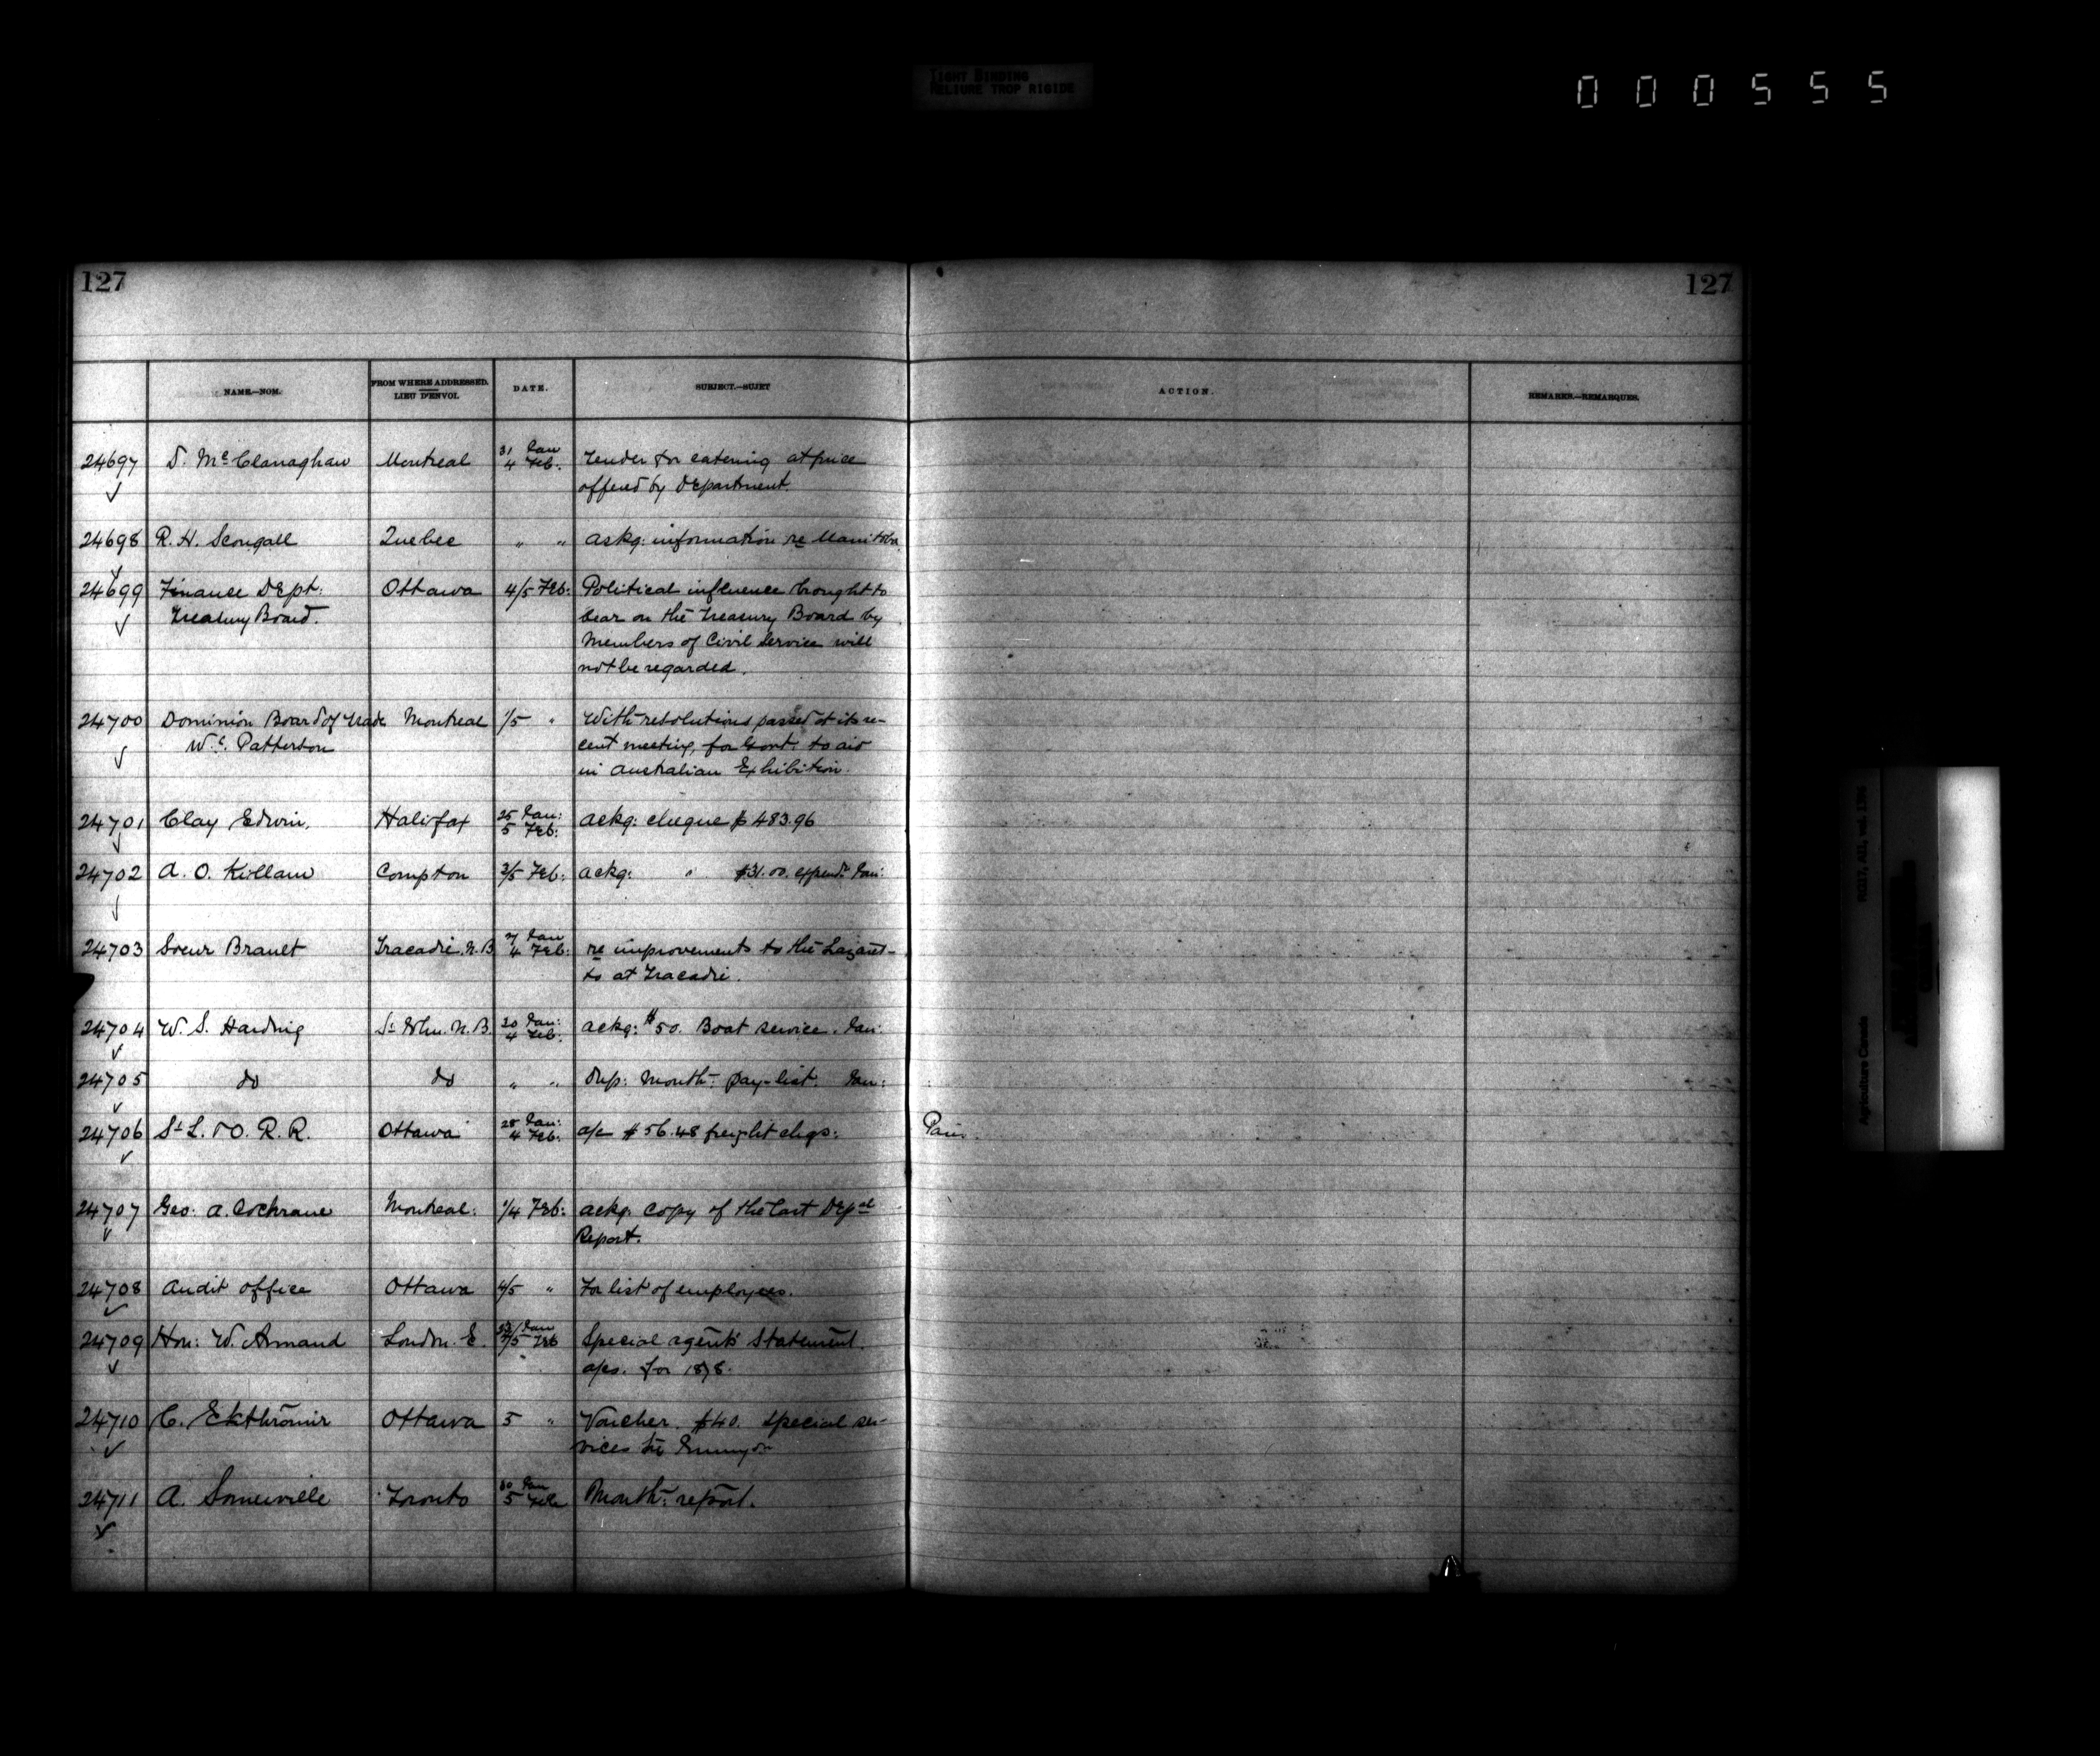 TIGHT BINDING
RELIURE TROP RIGIDE
000555
127 127
NAME.—NOM. FROM WHERE ADDRESSED. LIEU D'ENVOI. DATE. SUBJECT.—SUJET ACTION. REMARKS.—REMARQUES.
24697 D. McClanaghan Montreal 31 Jan 4 Feb. Tender for catering at price
offered by Department.
24698 R. H. Scougall Quebec " " ackg: information re Manitoba
24699 Finance Dept: Ottawa 4/5 Feb: Political influence brought to
Treasury Board. bear on the Treasury Board by
Members of Civil Service will
not be regarded.
24700 Dominion Board of Trade Montreal 1/5 " With resolutions passed at its re-
Patterson cent meeting, for Govt. to aid
in Australian Exhibition.
24701 Clay Edwin, Halifax 25 Jan: 5 Feb: ackg: cheque $483.96
24702 A. O. Killam Compton 3/5 Feb: ackg: " $31.00. expend. Jan:
24703 Soeur Brault Tracadie. N.B. Jan 4 Feb: re improvements to the Lazaret-
to at Tracadie.
24704 W. S. Harding St. John. N.B. 30 Jan: 4 Feb. ackg: $50. Boat service. Jan:
24705 do do " " Dup: Month: pay-list. Jan:
24706 St L. & O. R. R. Ottawa 28 Jan: 4 Feb. a/c $56.48 freight chgs: Paid
24707 Geo. A. Cochrane Montreal. 1/4 Feb: ackg. copy of the last Dept
Report.
24708 Audit office Ottawa 4/5 " For list of employees.
24709 Hon: W. Armand London. E. Jan Feb Special agents' Statement
a/cs. for 1878.
24710 C. Ottawa 5 " Voucher. $40. Special ser-
vices
24711 A. Somerville Toronto 30 Jan 5 Feb Month: report.
RG17, AII, vol. 1396
Agriculture Canada